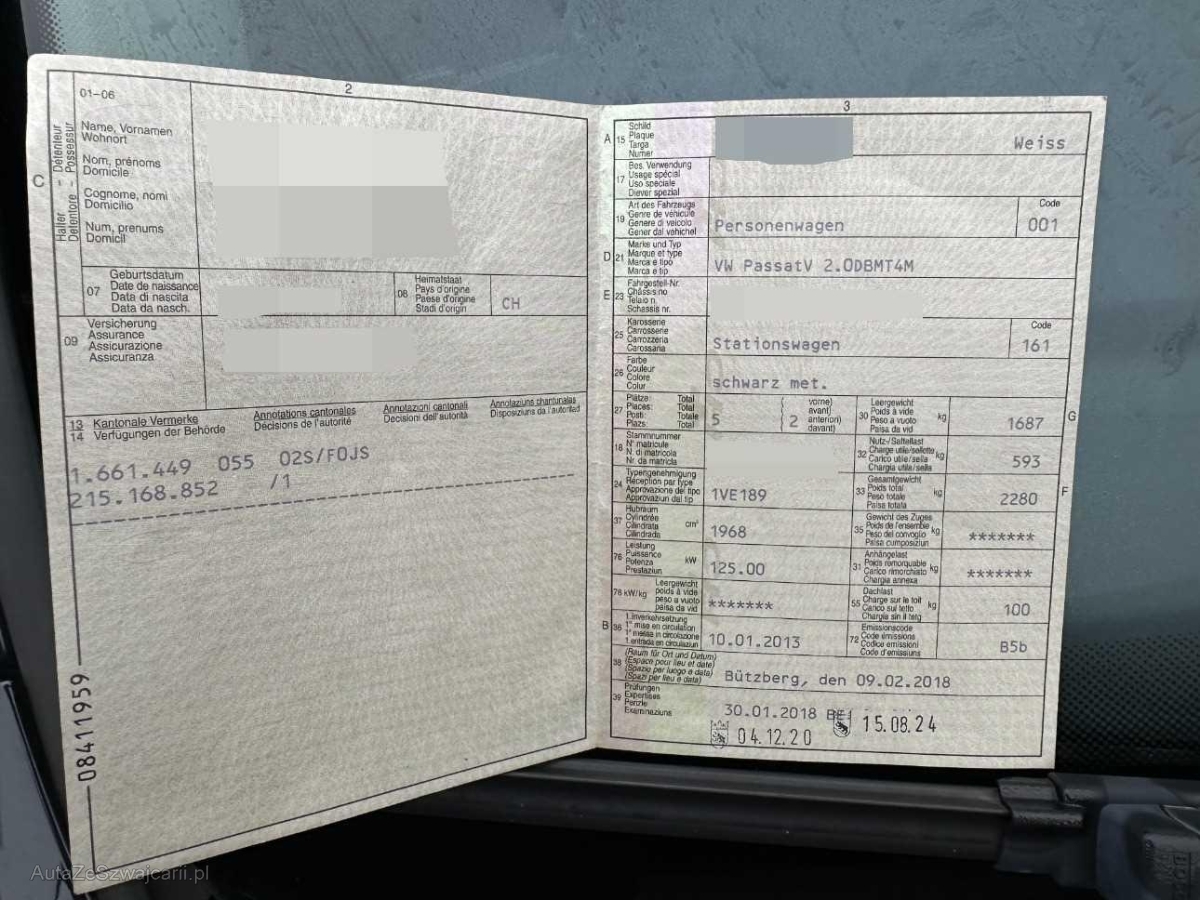 2
01-06
C
Halter - Détenteur
Detentore - Possessur
Name, Vornamen
Wohnort
Nom, prénoms
Domicile
Cognome, nomi
Domicilio
Num, prenums
Domicil
07
Geburtsdatum
Date de naissance
Data di nascita
Data da nasch.
08
Heimatstaat
Pays d'origine
Paese d'origine
Stadi d'origin
CH
09
Versicherung
Assurance
Assicurazione
Assicuranza
13 Kantonale Vermerke
14 Verfügungen der Behörde
Annotations cantonales
Décisions de l'autorité
Annotazioni cantonali
Decisioni dell'autorità
Annotaziuns chantunalas
Disposiziuns da l'autoritad
1.661.449 055 02S/FOJS
215.168.852 /1
08411959
3
A 15
Schild
Plaque
Targa
Numer
Weiss
17
Bes. Verwendung
Usage spécial
Uso speciale
Diever spezial
19
Art des Fahrzeugs
Genre de véhicule
Genere di veicolo
Gener dal vehichel
Personenwagen
Code
001
D 21
Marke und Typ
Marque et type
Marca e tipo
Marca e tip
VW PassatV 2.0DBMT4M
E 23
Fahrgestell-Nr.
Châssis no
Telaio n.
Schassis nr.
25
Karosserie
Carrosserie
Carrozzeria
Carossaria
Stationswagen
Code
161
26
Farbe
Couleur
Colore
Colur
schwarz met.
27
Plätze: Total
Places: Total
Posti: Totale
Plazs: Total
5
2
vorne)
avant)
anteriori)
davant)
30
Leergewicht
Poids à vide
Peso a vuoto
Paisa da vid
kg
1687
G
18
Stammnummer
N° matricule
N. di matricola
Nr. da matricla
32
Nutz-/Sattellast
Charge utile/sellette
Carico utile/sella
Chargia utila/sella
kg
593
24
Typengenehmigung
Réception par type
Approvazione del tipo
Approvaziun dal tip
1VE189
33
Gesamtgewicht
Poids total
Peso totale
Paisa totala
kg
2280
F
37
Hubraum
Cylindrée
Cilindrata
Cilindrada
cm³
1968
35
Gewicht des Zuges
Poids de l'ensemble
Peso del convoglio
Paisa cumposiziun
kg
*******
76
Leistung
Puissance
Potenza
Prestaziun
kW
125.00
31
Anhängelast
Poids remorquable
Carico rimorchiato
Chargia annexa
kg
*******
78 kW/kg
Leergewicht
poids à vide
peso a vuoto
paisa da vid
*******
55
Dachlast
Charge sur le toit
Carico sul tetto
Chargia sin il tetg
kg
100
B 36
1. Inverkehrsetzung
1re mise en circulation
1a messa in circolazione
1. entrada en circulaziun
10.01.2013
72
Emissionscode
Code émissions
Codice emissioni
Code d'emissiuns
B5b
38
(Raum für Ort und Datum)
(Espace pour lieu et date)
(Spazio per luogo e data)
(Spazi per lieu e data)
Bützberg, den 09.02.2018
39
Prüfungen
Expertises
Perizie
Examinaziuns
30.01.2018 BE
15.08.24
04.12.20
AutaZeSzwajcarii.pl